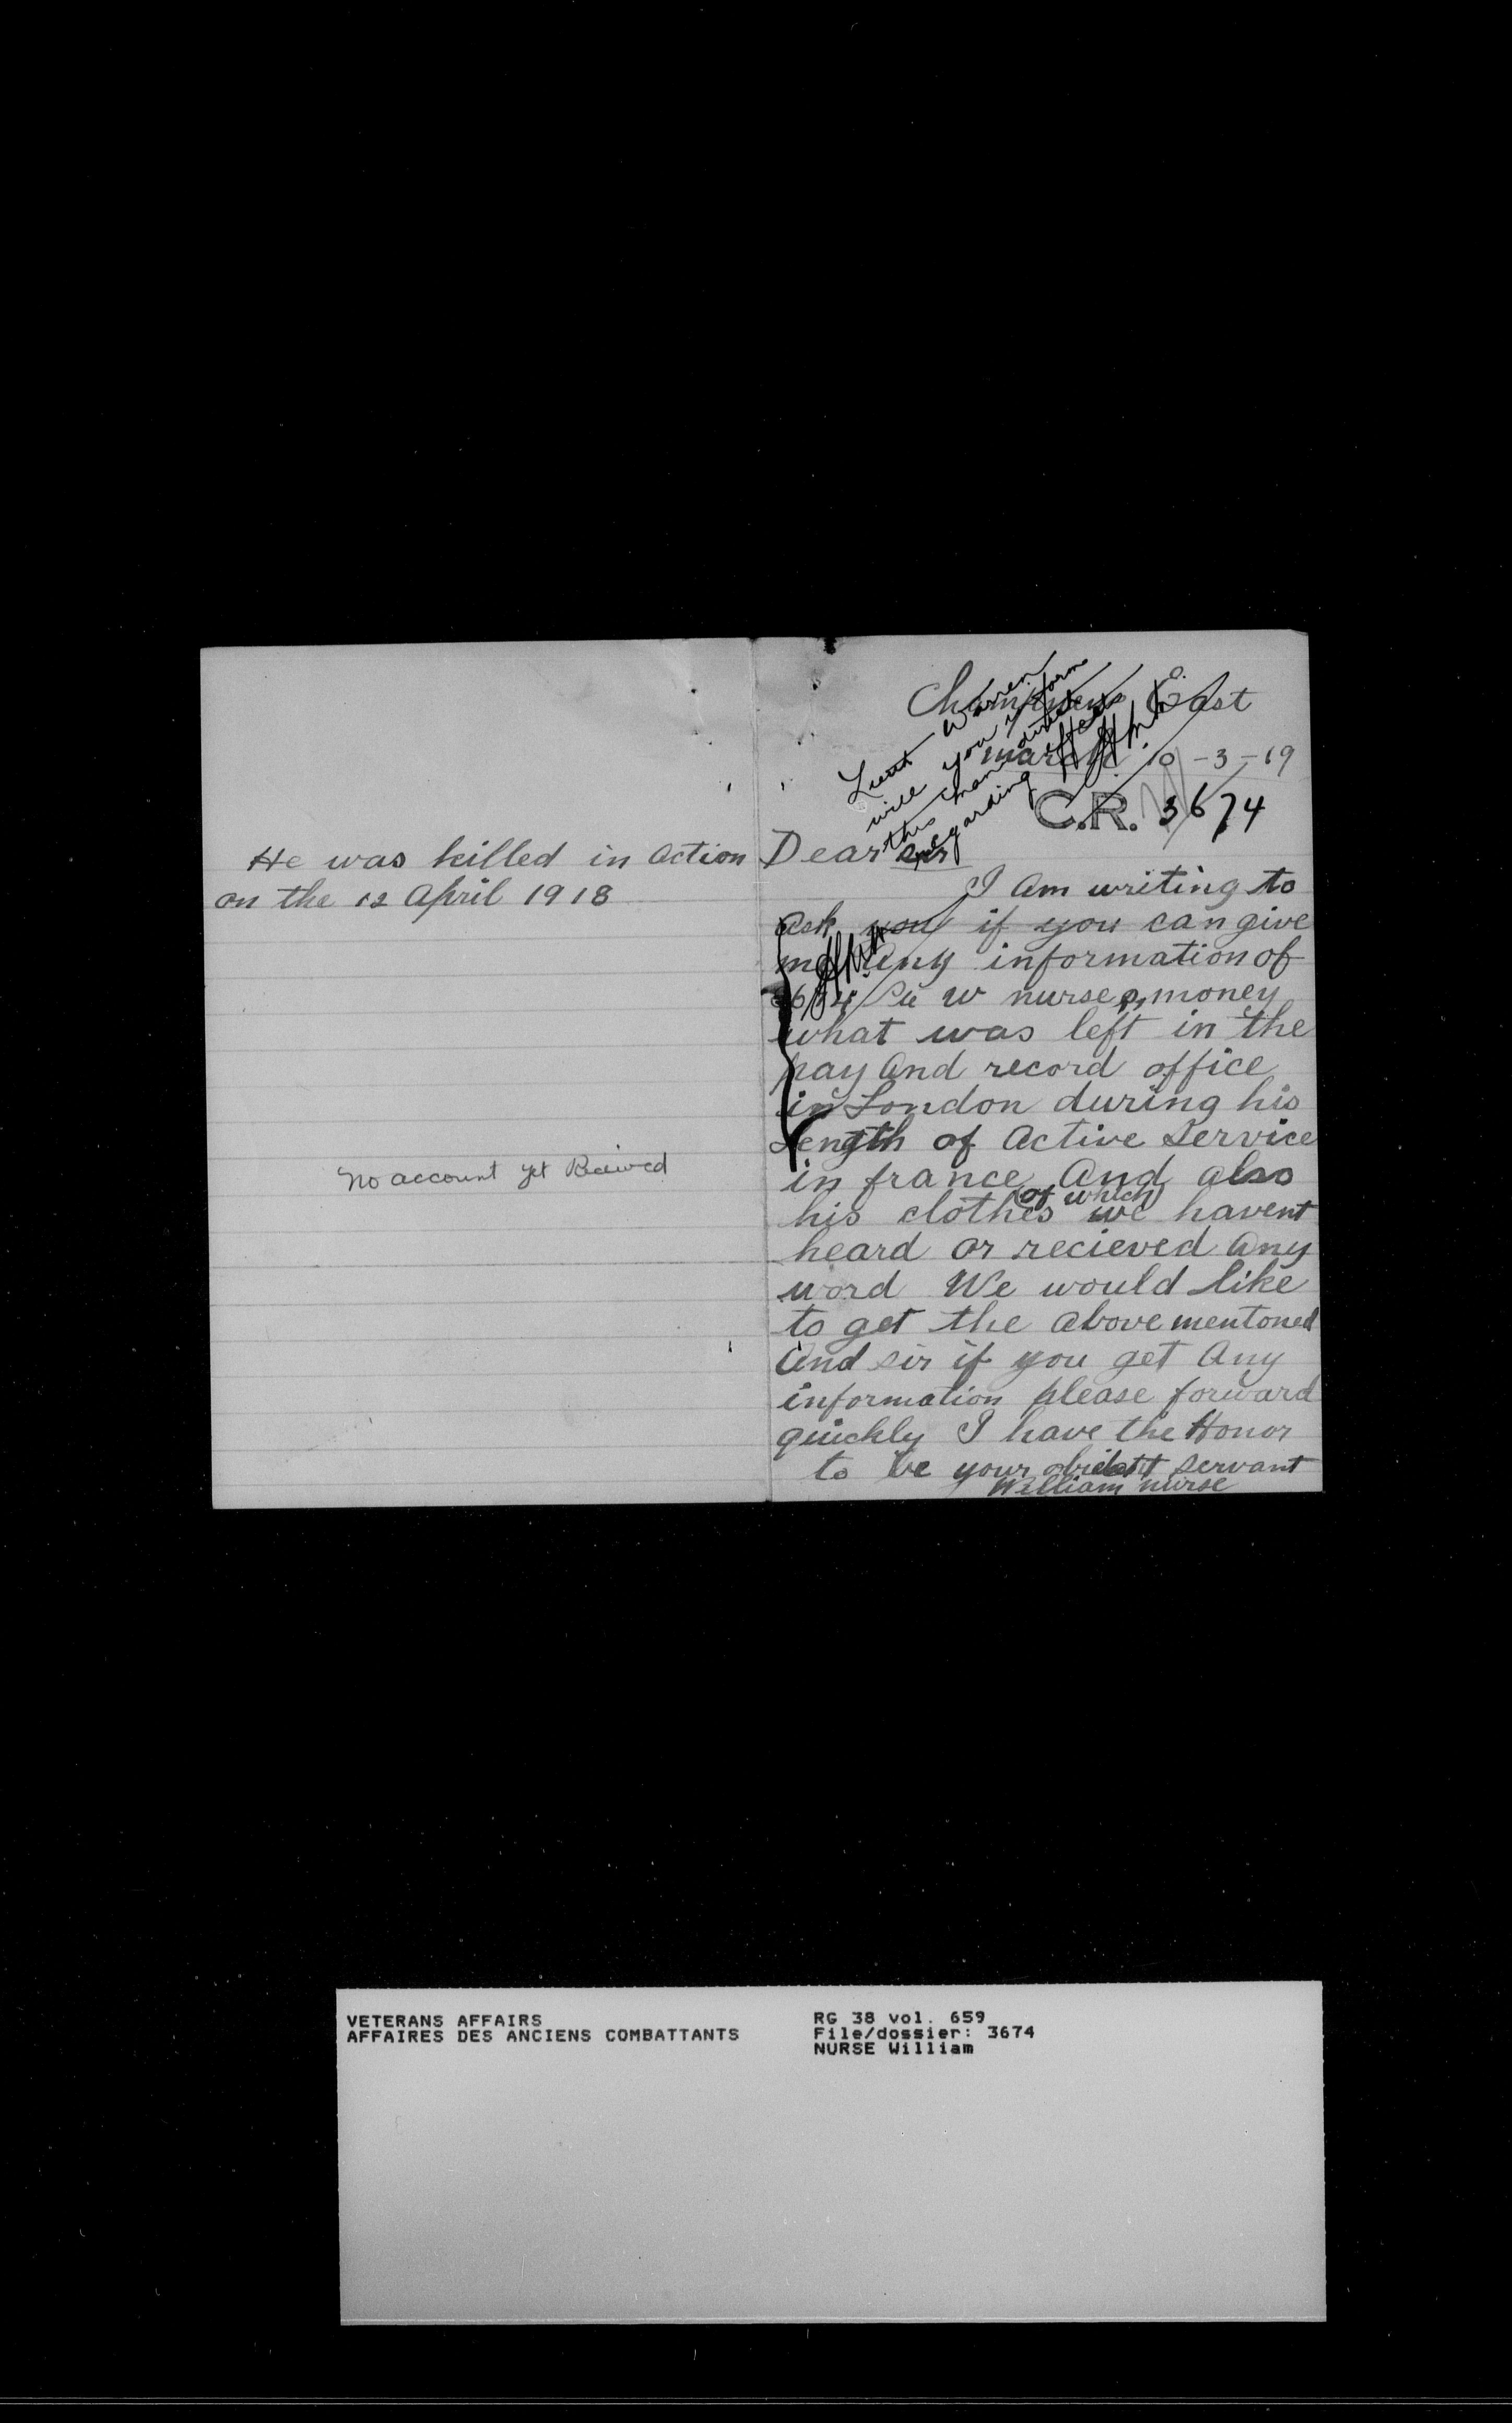 He was killed in Action
on the 12 April 1918
No account yet Received
Champneys East
March 10-3-19
Lieut Warren
will you inform
this man direct
regarding effects
C.R. 3674
Dear Sir
I Am writing to
Ask you if you can give
me Any information of
3674 Pte W nurse,s, money
what was left in the
pay And record office
in London during his
Length of Active Service
in france And also
his clothes (of which) we havent
heard or recieved Any
word We would like
to get the Above mentoned
And sir if you get Any
information please forward
quickly I have the Honor
to be your servant
William nurse
VETERANS AFFAIRS
AFFAIRES DES ANCIENS COMBATTANTS
RG 38 vol. 659
File/dossier: 3674
NURSE William